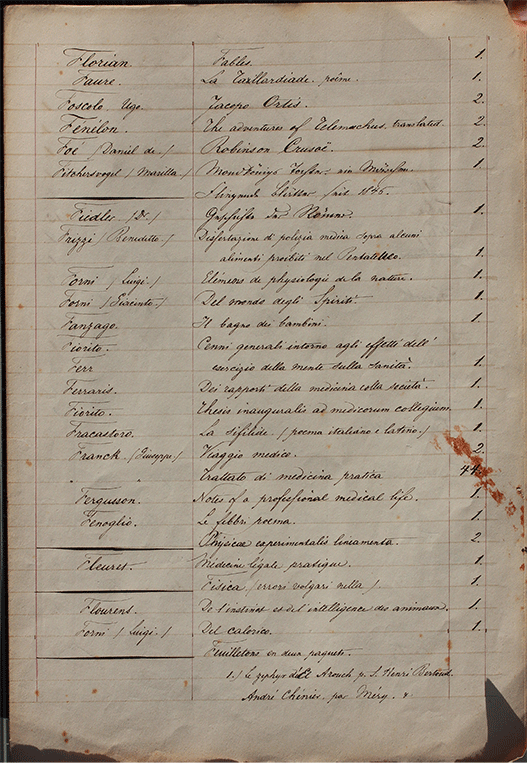 Florian Fables. 1.
Faure. La Taillardiade. poëme. 1.
Foscolo Ugo. Jacopo Ortis. 2.
Fénélon. The adventures of Telemachus translated. 2.
Foë /Daniel de/ Robinson Crusoë 2.
Fitchersvogel /Marilla/ 1.
seit 1845.
Fiedler /Dr./ Geschichte der Römer. 1.
Frizzi /Benedetto/ Dissertazione di polizia medica sopra alcuni
alimenti proibiti nel Pentateuco. 1.
Forni /Luigi/ Elémens de physiologie de la nature. 1.
Forni /Giacinto/ Del mondo degli Spiriti. 1.
Fanzago. Il bagno dei bambini. 1.
Fiorito. Cenni generali intorno agli effetti dell'
Ferr esercizio della mente sulla sanità. 1.
Ferraris. Dei rapporti della medicina colla società. 1.
Fiorito. Thesis inauguralis ad medicorum collegium 1.
Fracastoro. La sifilide. /poema italiano e latino./ 1.
Franck /Giuseppe/ Viaggio medico. 2.
" " Trattato di medicina pratica 44.
Fergusson. Notes of a professional medical life. 1.
Fenoglio. Le febbri poema. 1.
Physicae experimentalis lineamenta. 2.
Fleuret. Médecine légale pratique. 1.
Fisica /errori volgari nella/ 1.
Flourens. De l'instinct et de l'intelligence des animaux. 1.
Forni /Luigi/ Del calorico. 1.
Feuilletons in deux paquets.
1./ Le gyphs d'El Arouch p. S. Henri Berthoud.
André Chénier, par Méry. &